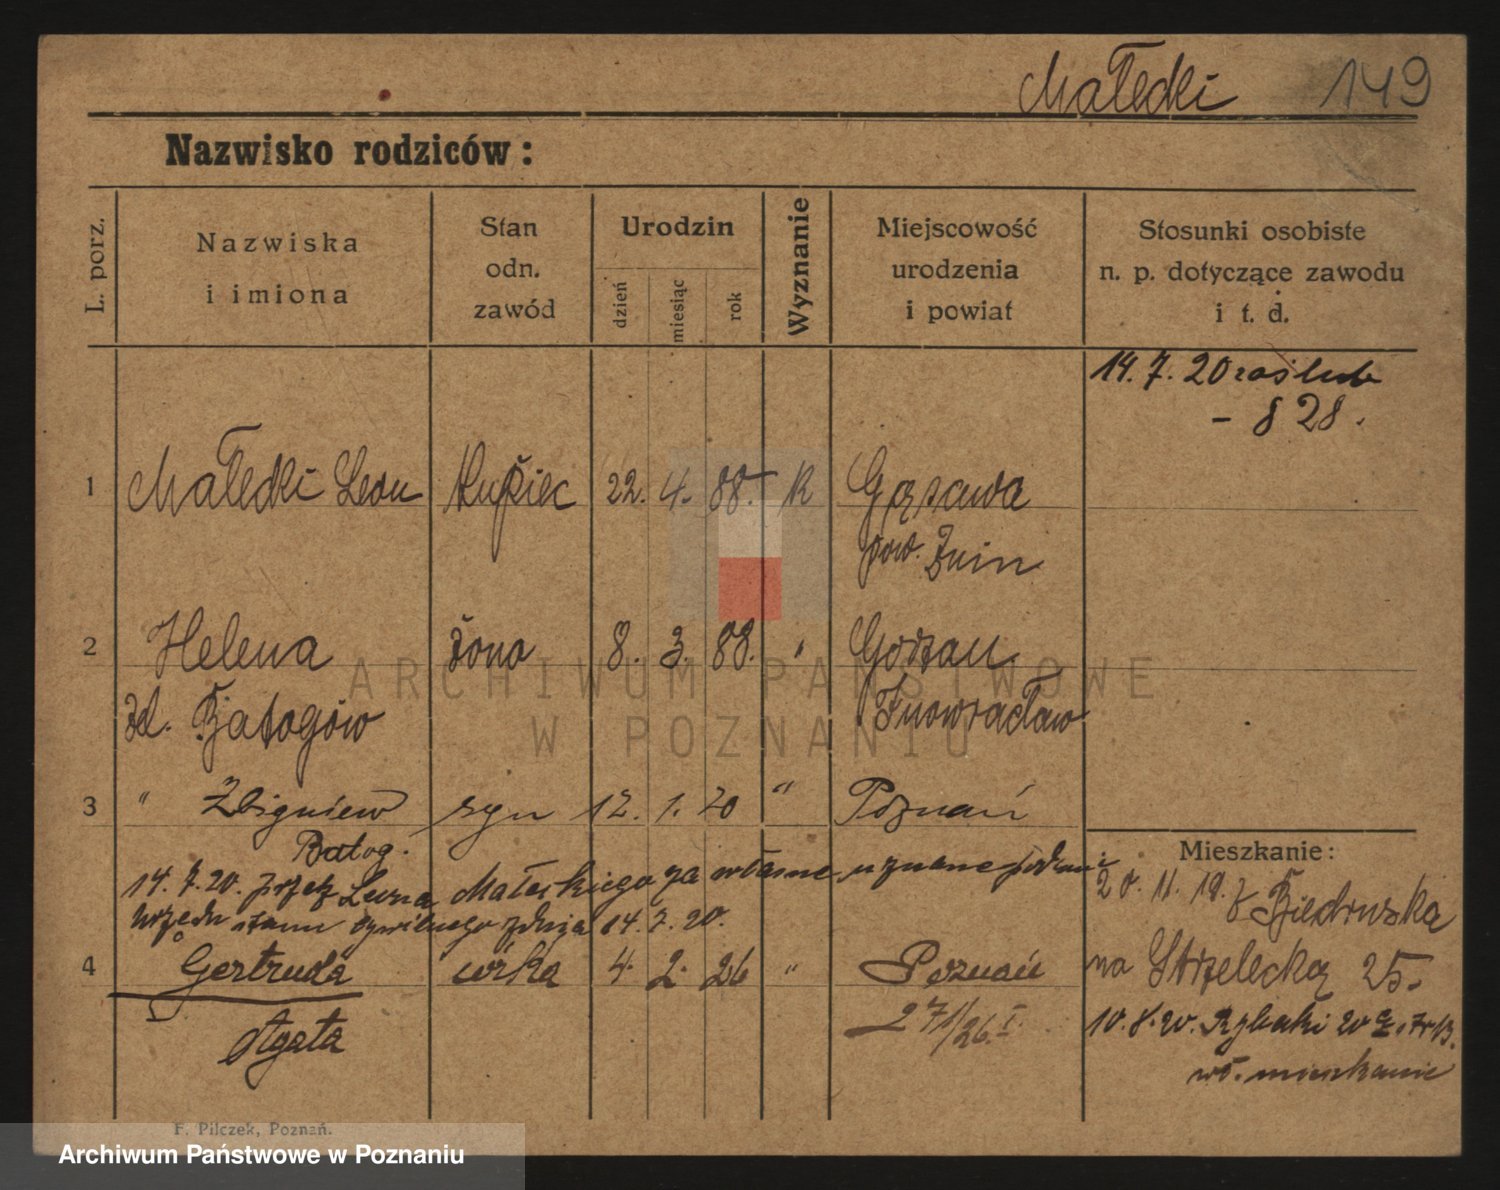 Małecki 149
Nazwisko rodziców:
L. porz.
Nazwiska
i imiona
Stan
odn.
zawód
Urodzin
dzień
miesiąc
rok
Wyznanie
Miejscowość
urodzenia
i powiat
Stosunki osobiste
n. p. dotyczące zawodu
i t. d.
14. 7. 20 zaślub
- 828.
1 Małecki Leon Kupiec 22. 4. 88. K Gąsawa
pow. Żnin
2 Helena żona 8. 3. 88. " 
zd. Batogów Inowrocław
3 " Zbigniew syn 12. 1. 20 " Poznań
Batog.
14. 7. 20. przez Leona Małeckiego za własne uznane podanie
Urzędu stanu cywilnego z dnia 14. 7. 20.
4 Gertruda córka 4. 2. 26 " Poznań
Agata
27/1/26. I.
Mieszkanie:
20. 11. 19. z Biedruska
na Strzelecką 25.
10. 8. 20. Rybaki 20
wł. mieszkanie
F. Pilczek, Poznań.
ARCHIWUM PAŃSTWOWE
W POZNANIU
Archiwum Państwowe w Poznaniu